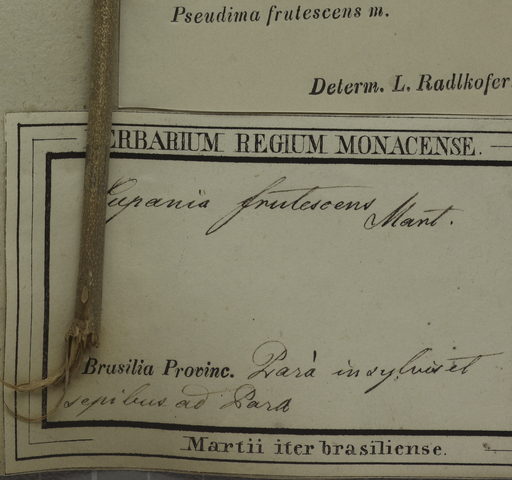 Pseudima frutescens m.
Determ. L. Radlkofer
ERBARIUM REGIUM MONACENSE.
Cupania frutescens Mart.
Brasilia Provinc. Parà in sylvis et
sepibus ad Para
Martii iter brasiliense.